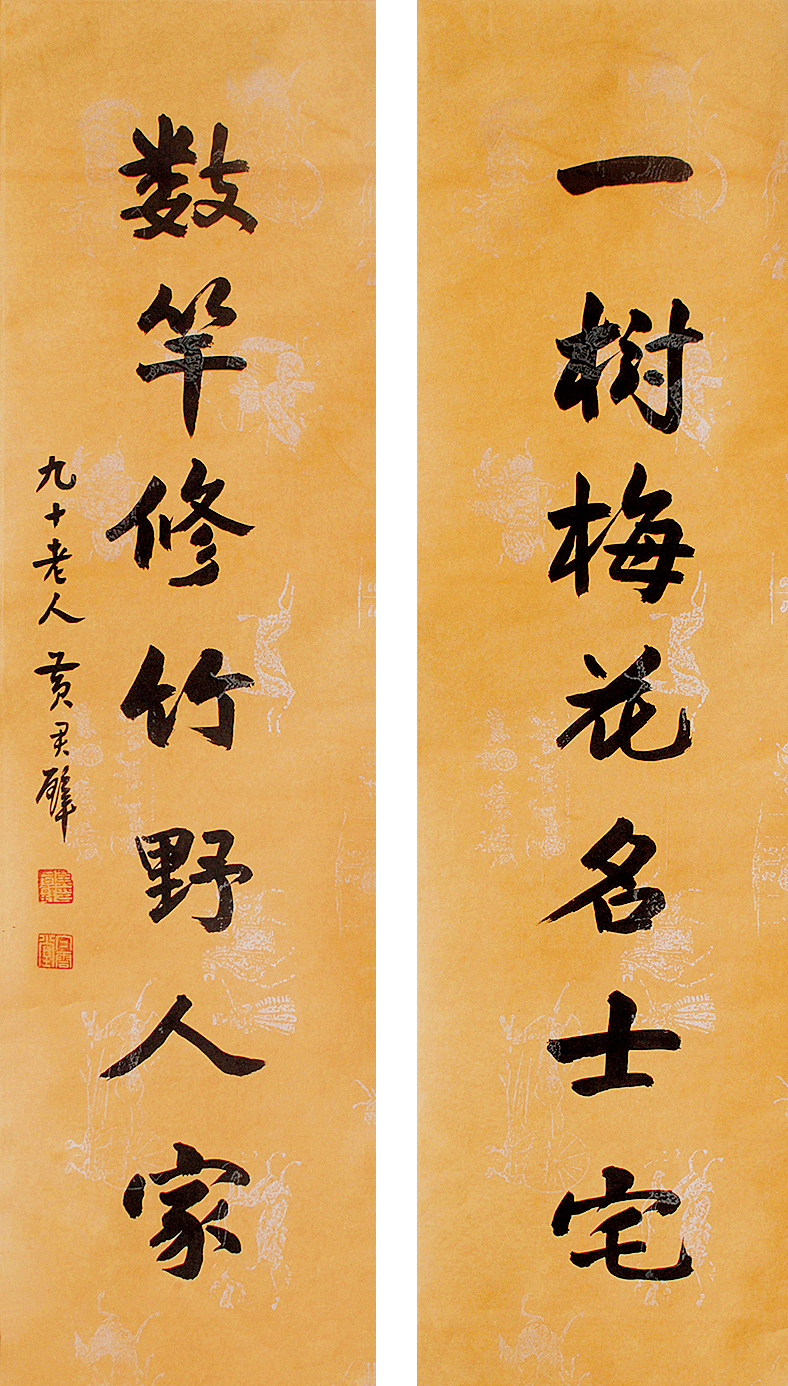 一树梅花名士宅
数竿修竹野人家
九十老人黄君璧